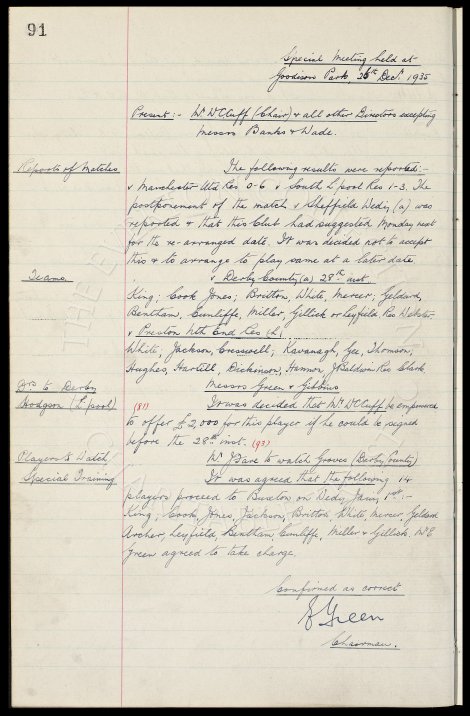 91
Special Meeting held at
Goodison Park, 26th Decr. 1935
Present:- Mr W C Cuff (Chair) & all other Directors excepting
Messrs Banks & Wade.
Reports of Matches
The following results were reported:-
v Manchester Utd Res 0-6 v South L'pool Res 1-3. The
postponement of the match v Sheffield Wedy (a) was
reported & that this Club had suggested Monday next
for the re-arranged date. It was decided not to accept
this & to arrange to play same at a later date
Teams.
v Derby County (a) 28th inst.
King; Cook Jones; Britton, White, Mercer; Geldard,
Bentham, Cunliffe, Miller, Gillick or Leyfield Res Webster
v Preston Nth End Res (h)
White; Jackson, Cresswell; Kavanagh, Gee, Thomson,
Hughes, Hartill, Dickinson, Hannon, J Baldwin Res Clark
Drs. to Derby
Messrs Green & Gibbins
Hodgson (L'pool)
(81)
It was decided that Mr W C Cuff be empowered
to offer £2,000 for this player if he could be signed
before the 28th inst. (93)
Players to Watch
Mr J Fare to watch Groves (Derby County)
Special Training
It was agreed that the following 14
players proceed to Buxton on Wedy, Jany 1st:-
King; Cook, Jones, Jackson, Britton, White, Mercer, Geldard
Archer, Leyfield, Bentham, Cunliffe, Miller & Gillick. Mr E
Green agreed to take charge.
Confirmed as correct
E Green
Chairman.